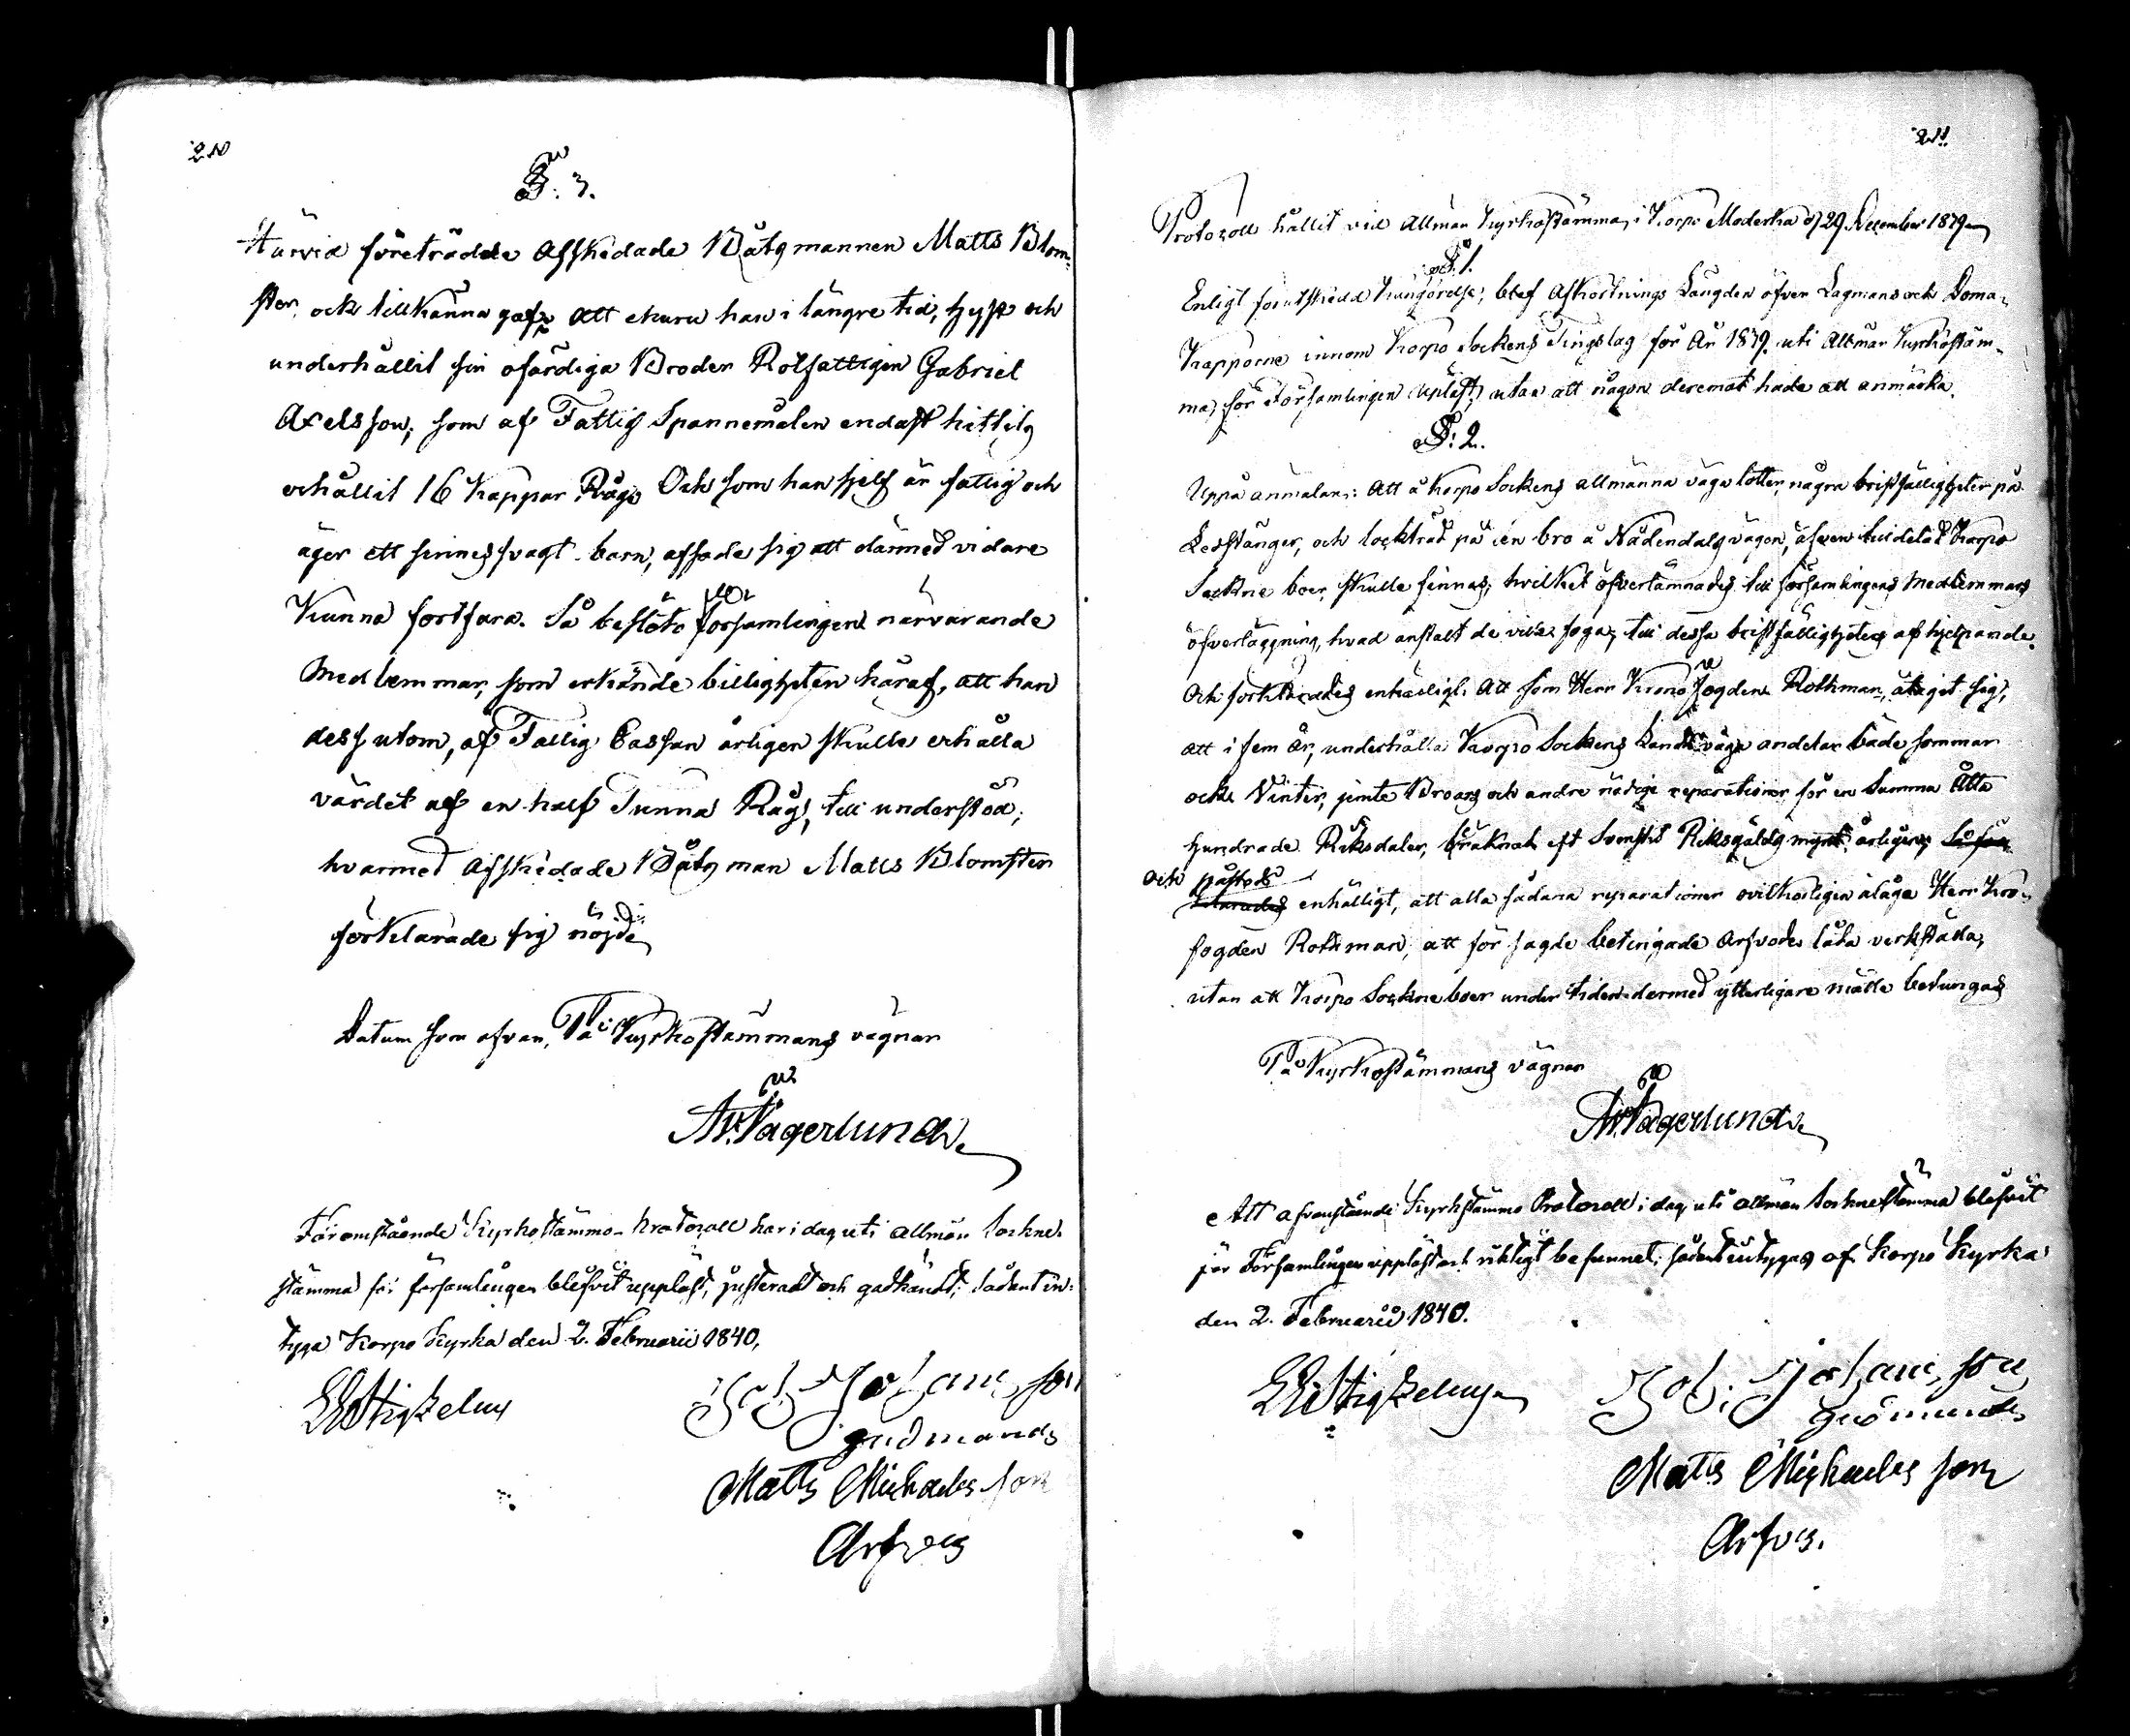 210
§: 3.
Härvid företrädde Afskedade Båtsmannen Matts Blom-
ster, och tillkänna gaf, Att ehuru han i längre tid, hyst och
underhållit sin ofärdiga Broder Rotfattigen Gabriel
Axelsson, som af Fattig Spannemålen endast hittils
erhållit 16 Kappar Råg, Och som han sjelf är fattig och
äger ett sinnessvagt barn, afsade sig att därmed vidare
Kunna fortfara. Så beslöto församlingens närvarande
Medlemmar, som erkände billigheten häraf, att han
dessutom, af Fattig Cassan årligen skulle erhålla
värdet af en half Tunna Råg, till understöd;
hvarmed Afskedade Båtsman Matts Blomster
förklarade sig nöjd.
Datum som ofvan, På Kyrkostämmans vägnar
Fagerlund
Föromstående Kyrkostämmo-Protocoll har i dag uti allmän Sockne-
stämma för församlingen blefvit uppläst, justeradt och godkändt; sådant in-
tyga Korpo Kyrka den 2. Februarii 1840.
Joh: Johans son
gudmunds
Matts Michaels son
Arfvas
211
Protocoll hållit vid Allmän Kyrkostämma, i Korpo Moderka d. 29. December 1839.
§: 1.
Enligt förutskedd Kungörelse, blef Afkortnings Längden öfver Lagmans och Doma-
Kapporne innom Korpo Sockens Tingslag för År 1839. uti Allmän Kyrkostäm-
ma, för Församlingen upläst, utan att någon deremot hade att anmärka.
§: 2.
Uppå anmälan: Att å Korpo Sockens allmänna väga lotter, några bristfälligheter på
Ledstänger, och locktråd på en bro å Nådendals vägen, äfven tilldelad Korpo
Sockne boer, skulle finnas, hvilket öfverlämnades till församlingens Medlemmars
öfverläggning, hvad anstalt de ville foga, till dessa bristfälligheters afhjelpande.
Och förklarades enhälligt: Att som Herr Krono Fogden Rothman, åtagit sig,
att i fem år, underhålla Korpo Sockens Landsvägs andelar både sommar
och Vinter, jemte Broars och andre nödige reparationer för en Summa Åtta
hundrade Riksdaler, beräknat eft Svenskt Riksgälds mynt, årligen,
och påstods enhälligt, att alla sådana reparationer ovilkorligen ålåge Herr Kro-
fogden Rothman, att för sagde betingade Arfvode låta verkställa,
utan att Korpo Sockneboer under tiden dermed ytterligare måtte betungas
På Kyrkostämmans vägnar
Fagerlund
Att ofvanstående Kyrkstämmo Protocoll i dag uti allmän Socknestämma blefvit
för Församlingen uppläst och riktigt befunnet; sådant intygas af Korpo Kyrka
den 2. Februarii 1840.
Joh: Johans son
gudmunds
Matts Michaels son
Arfvas.